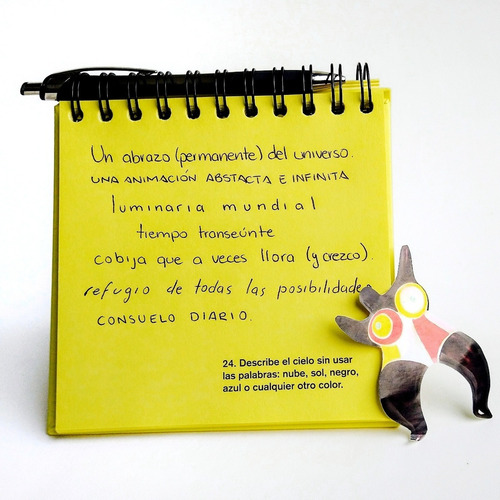 Un abrazo (permanente) del universo.
UNA ANIMACIÓN ABSTACTA E INFINITA
luminaria mundial
tiempo transeúnte
cobija que a veces llora (y crezco).
refugio de todas las posibilidades
CONSUELO DIARIO.
24. Describe el cielo sin usar
las palabras: nube, sol, negro,
azul o cualquier otro color.